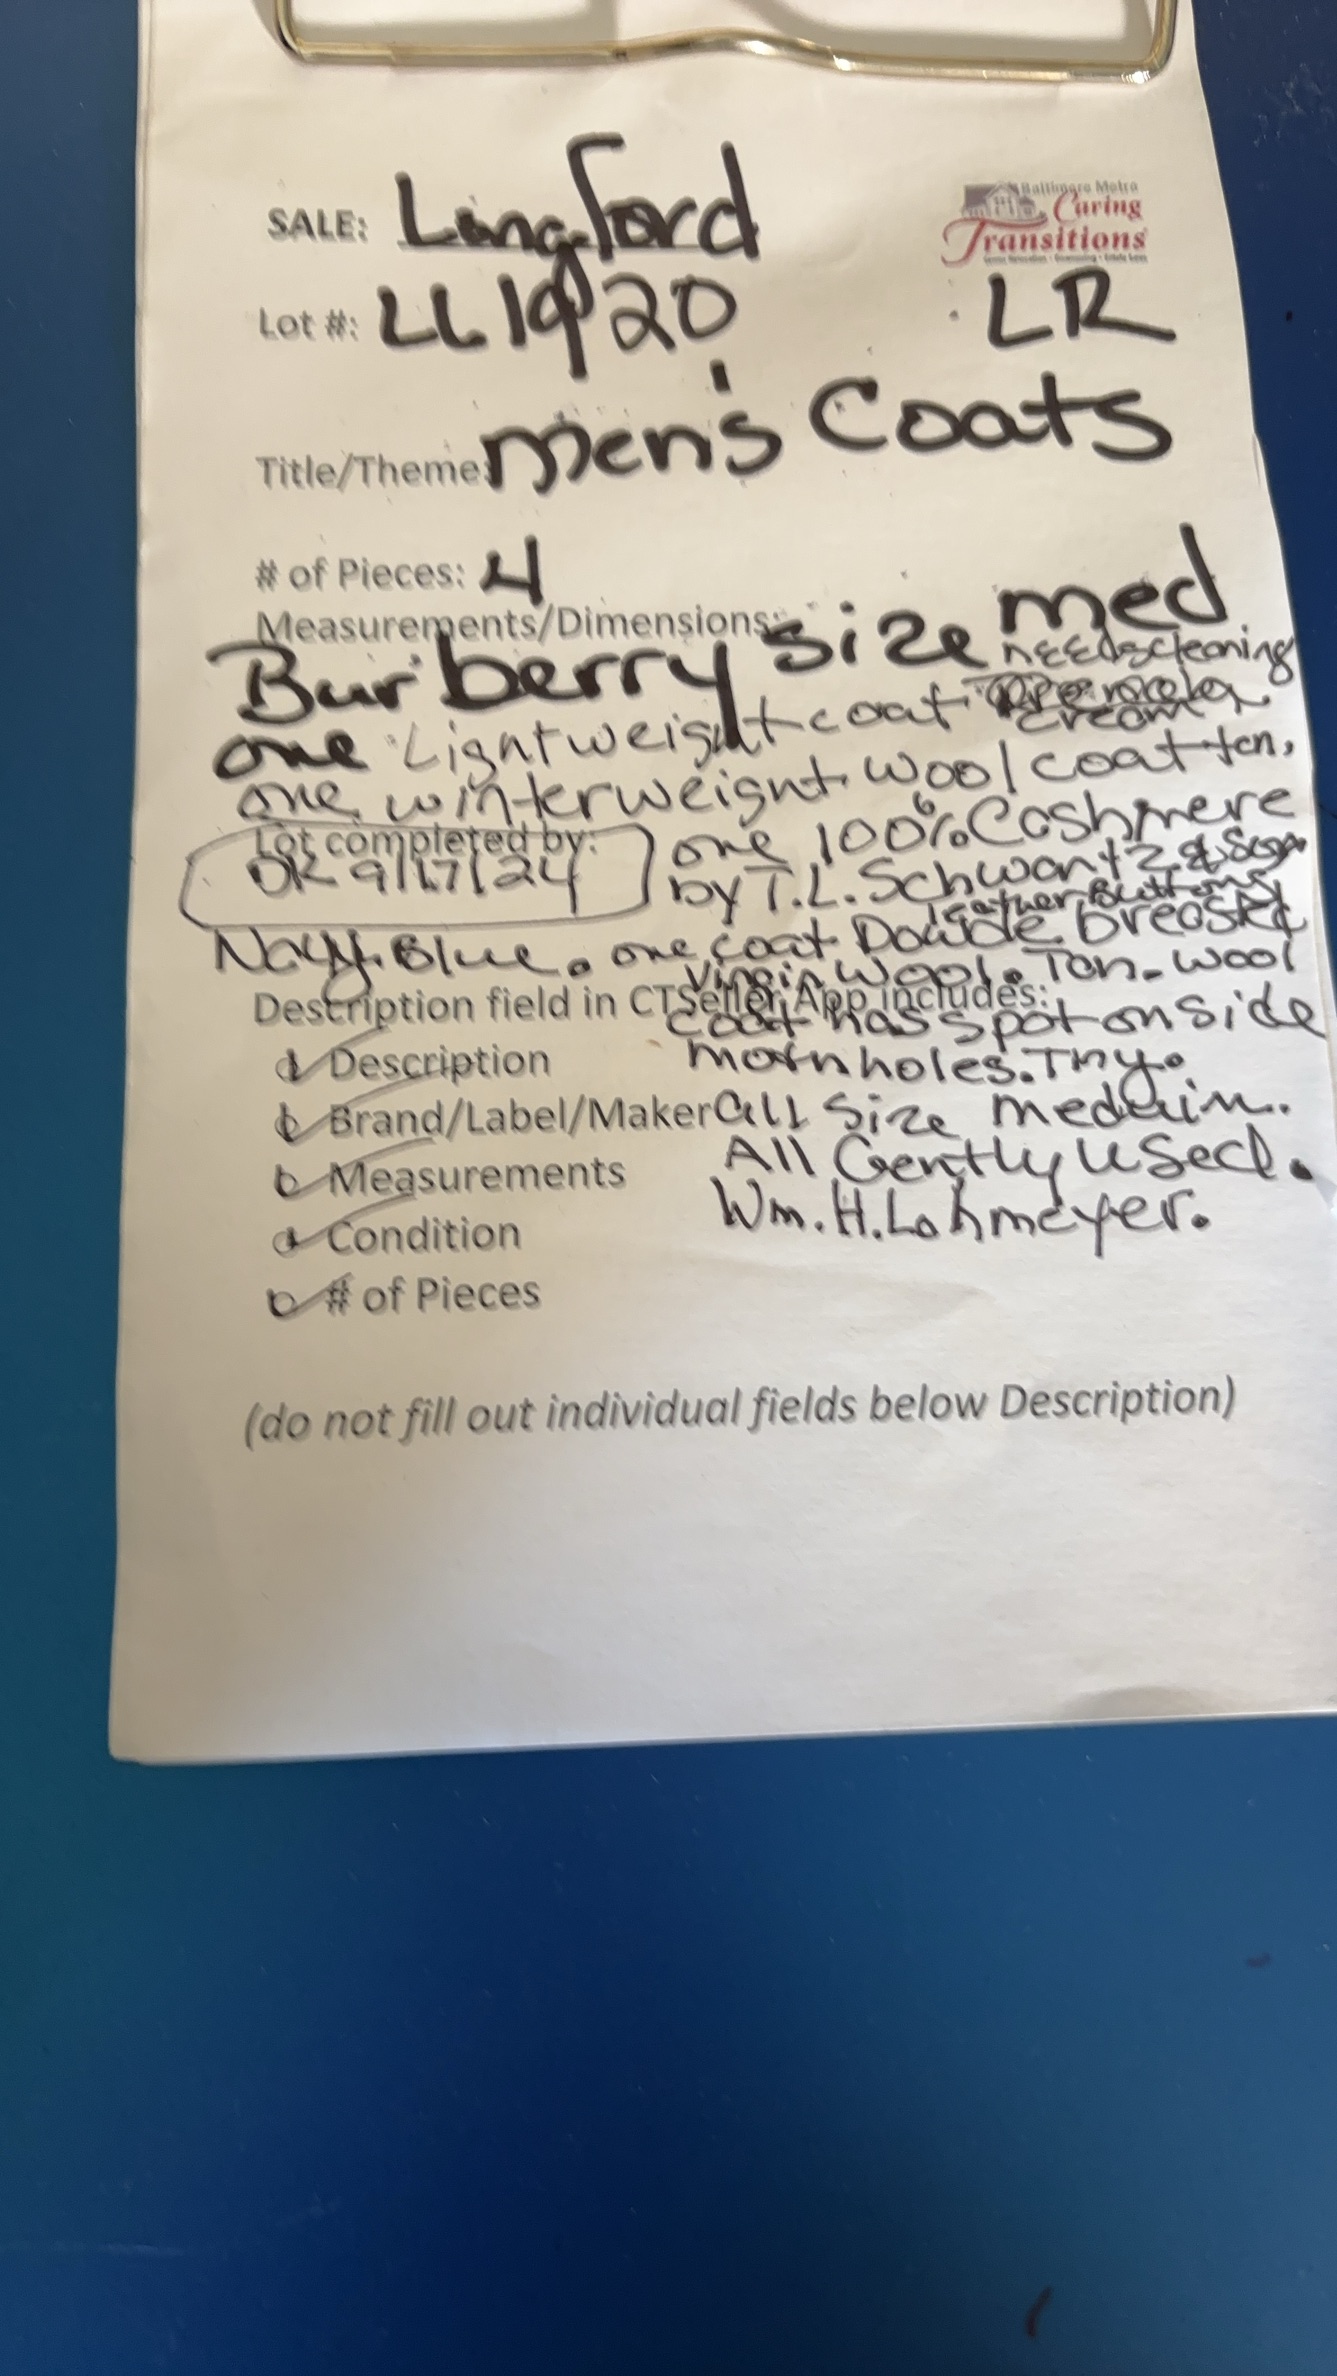 SALE: Langford
Baltimore Metro
Caring
Transitions
Senior Relocation • Downsizing • Estate Sales
Lot #: LL1920 LR
Title/Theme: Men's Coats
# of Pieces: 4
Measurements/Dimensions:
Burberry size med
needs cleaning
one Lightweight coat
cream
one winterweight wool coat tan,
one 100% Cashmere
Lot completed by:
DR 9/17/24
by T.L. Schwantz &
leather Buttons
Navy Blue. one coat Double breasted
Virgin Wool. Tan. Wool
Description field in CTSeller App includes:
coat has spot on side
Description
moth holes. Tiny.
Brand/Label/Maker
all size medium.
Measurements
All Gently used.
Wm. H. Lohmeyer.
Condition
# of Pieces
(do not fill out individual fields below Description)